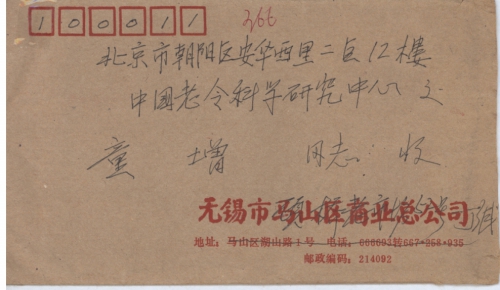 100011 366
北京市朝阳区安华西里二区12楼
中国老令科学研究中心 交
童 增 同志 收
无锡市马山区商业总公司
地址：马山区湖山路1号 电话：666693转667*258*935
邮政编码：214092